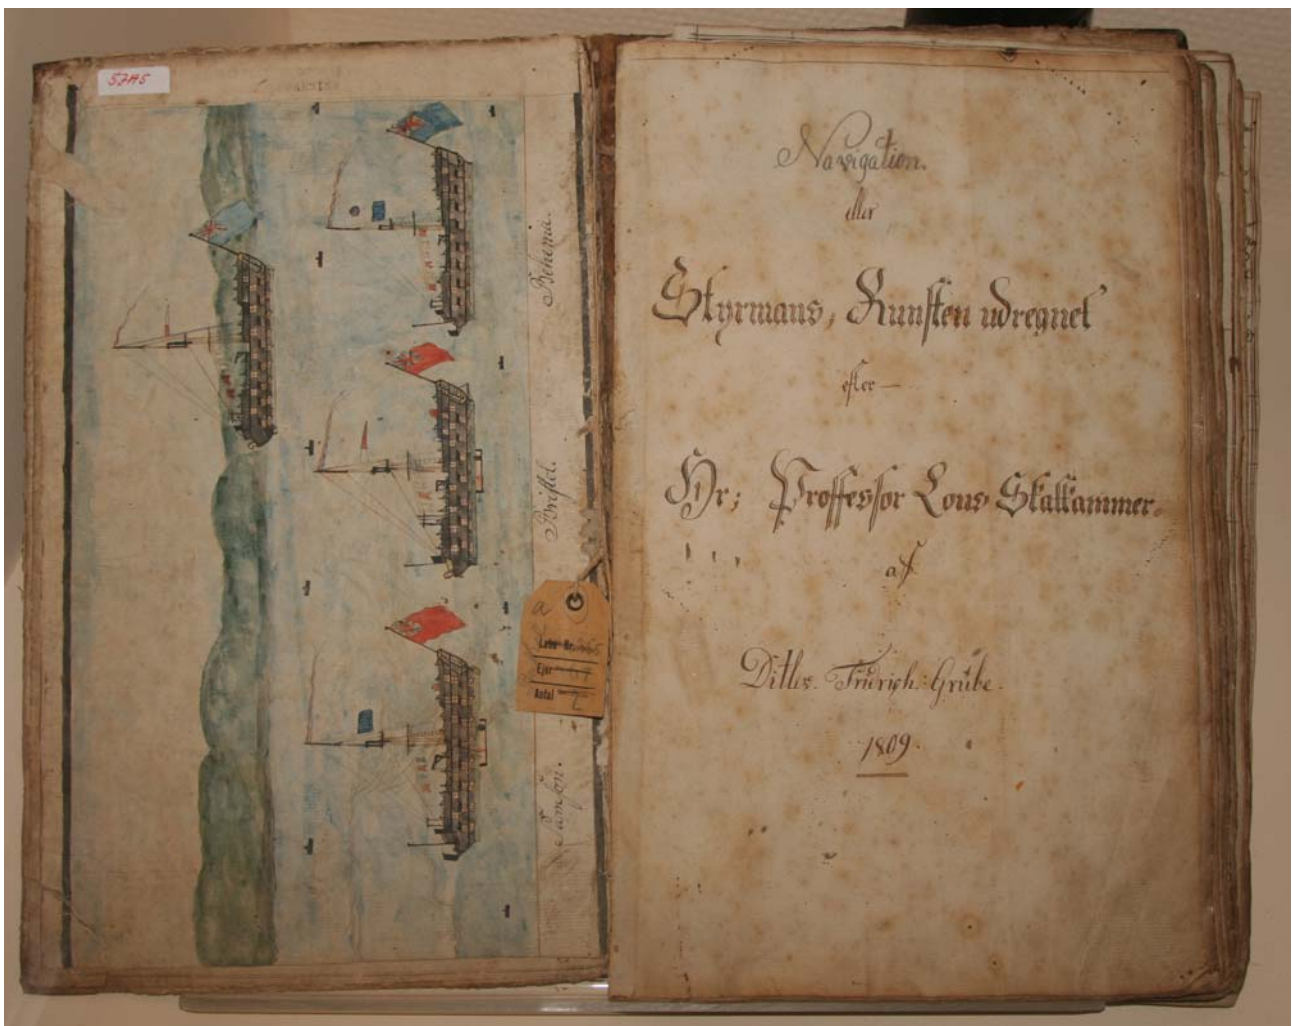 57A5
Bahama.
Bristol.
Samson.
a
Løbe Nr.
Ejer
Antal 2
Navigation.
eller
Styrmans, Kunsten udregnet
efter
Hr; Proffessor Lous Skatkammer.
af
Ditlev. Fridrich. Grübe.
1809.